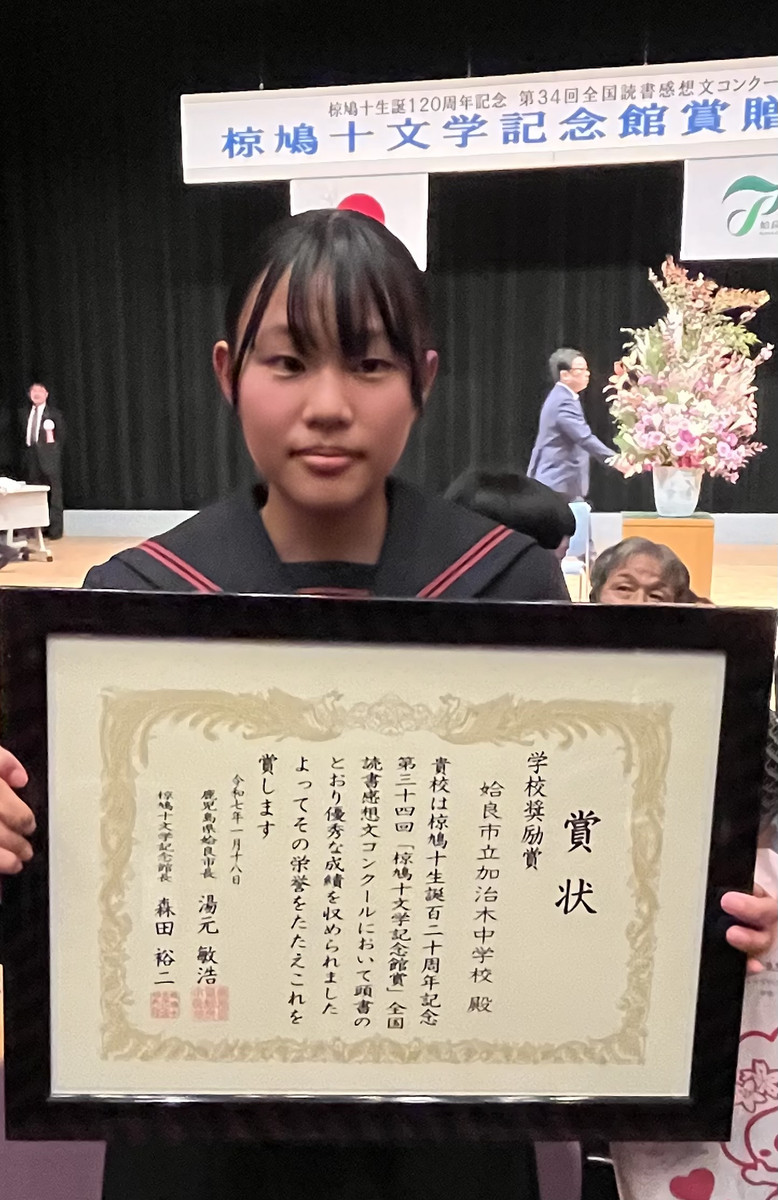 椋鳩十生誕120周年記念 第34回全国読書感想文コンクー
椋鳩十文学記念館賞贈
賞状
学校奨励賞
姶良市立加治木中学校 殿
貴校は椋鳩十生誕百二十周年記念
第三十四回「椋鳩十文学記念館賞」全国
読書感想文コンクールにおいて頭書の
とおり優秀な成績を収められました
よってその栄誉をたたえこれを
賞します
令和七年一月十八日
鹿児島県姶良市長 湯元 敏浩
椋鳩十文学記念館長 森田 裕二